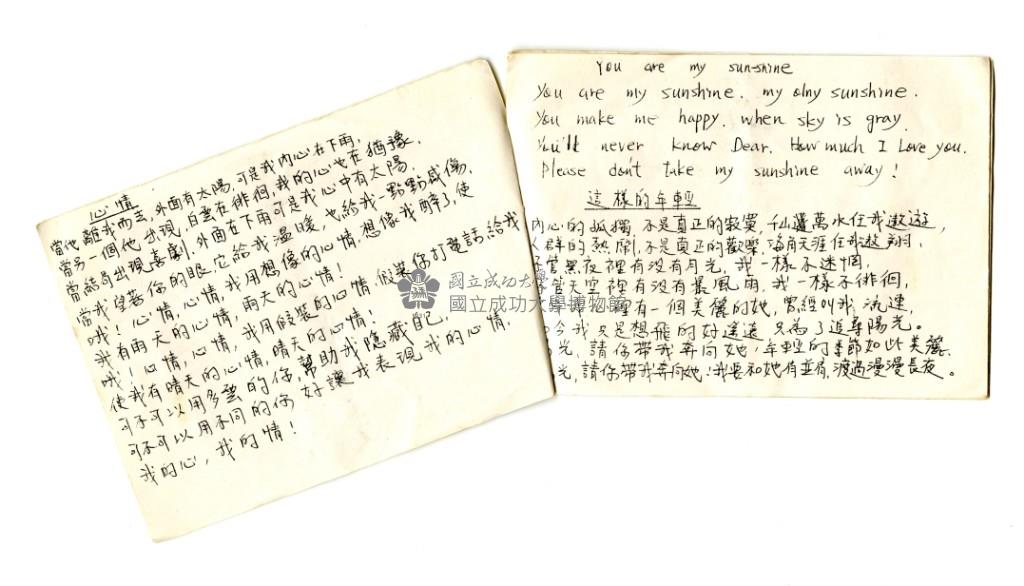 心情
當他離我而去，外面有太陽，可是我內心在下雨，
當另一個他出現，白雲在徘徊，我的心也在猶豫，
當結局出現喜劇，外面在下雨可是我心中有太陽。
當我望著你的眼，它給我溫暖，也給我一點點感傷，
哦！心情，心情，我用想像的心情，想像我醉了，使
我有雨天的心情，雨天的心情！
哦！心情，心情，我用假裝的心情假裝你打電話給我
使我有晴天的心情，晴天的心情！
可不可以用多雲的你，幫助我隱藏自己，
可不可以用不同的你，好讓我表現我的心情，
我的心，我的情！
You are my sun-shine
You are my sunshine. my olny sunshine.
You make me happy. when sky is gray.
You'll never know Dear. How much I Love you.
Please don't take my sunshine away!
這樣的年輕
內心的孤獨，不是真正的寂寞，千山萬水任我遨遊，
人群的熱鬧，不是真正的歡樂，海角天涯任我遨翔，
管黑夜裡有沒有月光，我一樣不迷惘，
管天空裡有沒有暴風雨，我一樣不徘徊，
裡有一個美麗的她，曾經叫我流連，
今我只是想飛的好遙遠，只為了追尋陽光。
光，請你帶我奔向她，年輕的季節如此美麗、
光，請你帶我奔向她！我要和她肩並肩，渡過漫漫長夜。
國立成功大學
國立成功大學博物館